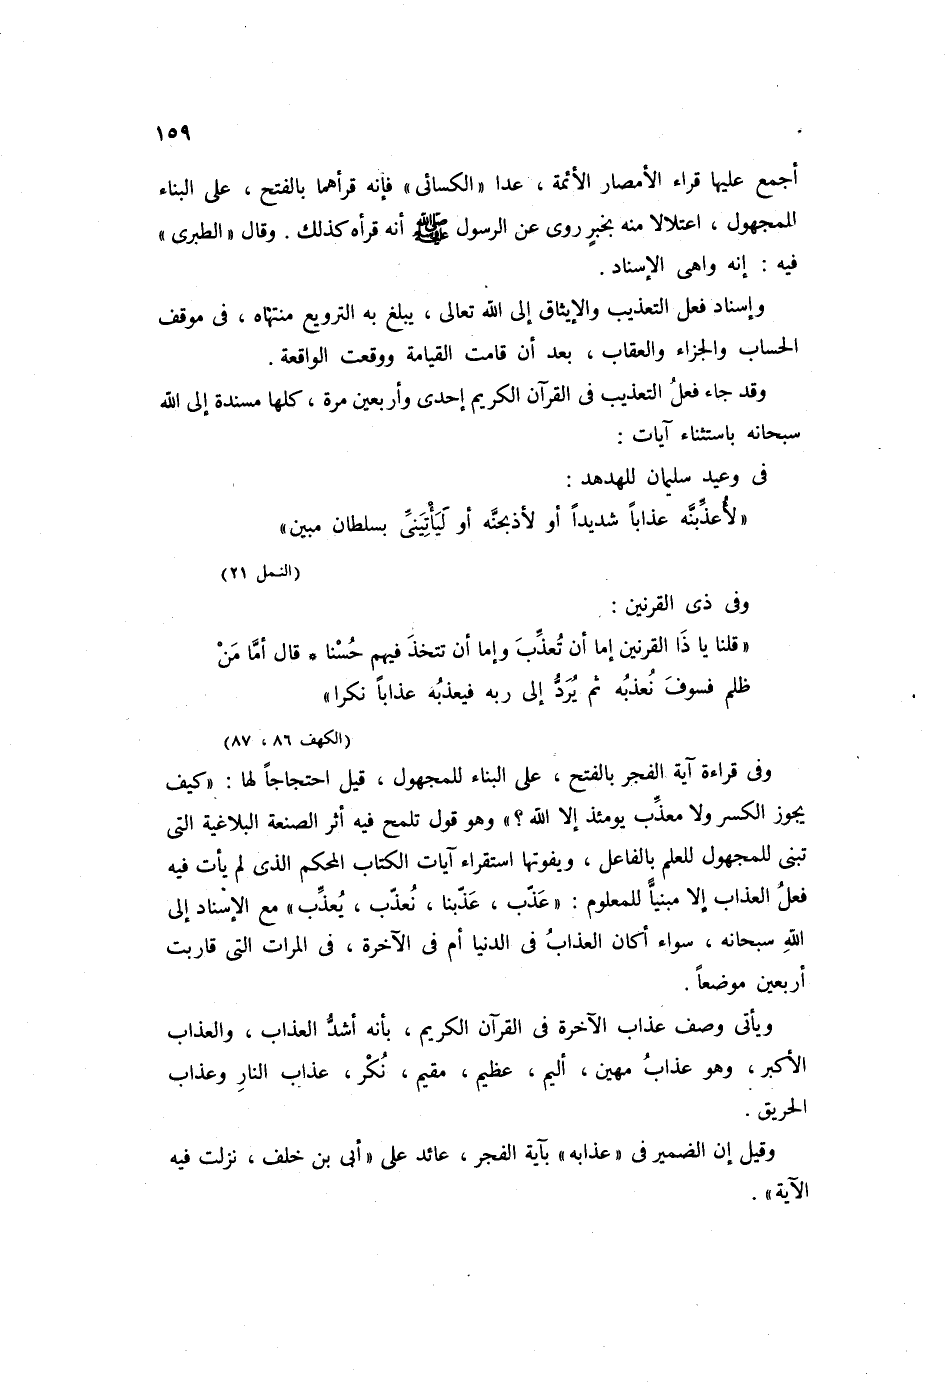 ١٥٩
أجمع عليها قراء الأمصار الأئمة ، عدا «الكسائى» فإنه قرأهما بالفتح ، على البناء
للمجهول ، اعتلالا منه بخبرٍ روى عن الرسول ﷺ أنه قرأه كذلك . وقال «الطبرى»
فيه : إنه واهى الإسناد .
وإسناد فعل التعذيب والإيثاق إلى الله تعالى ، يبلغ به الترويع منتهاه ، فى موقف
الحساب والجزاء والعقاب ، بعد أن قامت القيامة ووقعت الواقعة .
وقد جاء فعلُ التعذيب فى القرآن الكريم إحدى وأربعين مرة ، كلها مسندة إلى الله
سبحانه باستثناء آيات :
فى وعيد سليمان للهدهد :
«لأُعذِّبنَّه عذاباً شديداً أو لأذبحنَّه أو لَيَأْتِيَنىِّ بسلطان مبين»
(النمل ٢١)
وفى ذى القرنين :
«قلنا يا ذَا القرنين إما أن تُعذِّبَ وإما أن تتخذَ فيهم حُسْنا * قال أمَّا مَنْ
ظلم فسوفَ نُعذبُه ثم يُرَدُّ إلى ربه فيعذبُه عذاباً نكرا»
(الكهف ٨٦ ، ٨٧)
وفى قراءة آية الفجر بالفتح ، على البناء للمجهول ، قيل احتجاجاً لها : «كيف
يجوز الكسر ولا معذِّب يومئذ إلا الله ؟» وهو قول تلمح فيه أثر الصنعة البلاغية التى
تبنى للمجهول للعلم بالفاعل ، ويفوتها استقراء آيات الكتاب المحكم الذى لم يأت فيه
فعلُ العذاب إلا مبنياًّ للمعلوم : «عَذّب ، عَذّبنا ، نُعذّب ، يُعذِّب» مع الإسناد إلى
اللهِ سبحانه ، سواء أكان العذابُ فى الدنيا أم فى الآخرة ، فى المرات التى قاربت
أربعين موضعاً .
ويأتى وصف عذاب الآخرة فى القرآن الكريم ، بأنه أشدُّ العذاب ، والعذاب
الأكبر ، وهو عذابُ مهين ، أليم ، عظيم ، مقيم ، نُكْر ، عذاب النارِ وعذاب
الحريق .
وقيل إن الضمير فى «عذابه» بآية الفجر ، عائد على «أبى بن خلف ، نزلت فيه
الآية» .